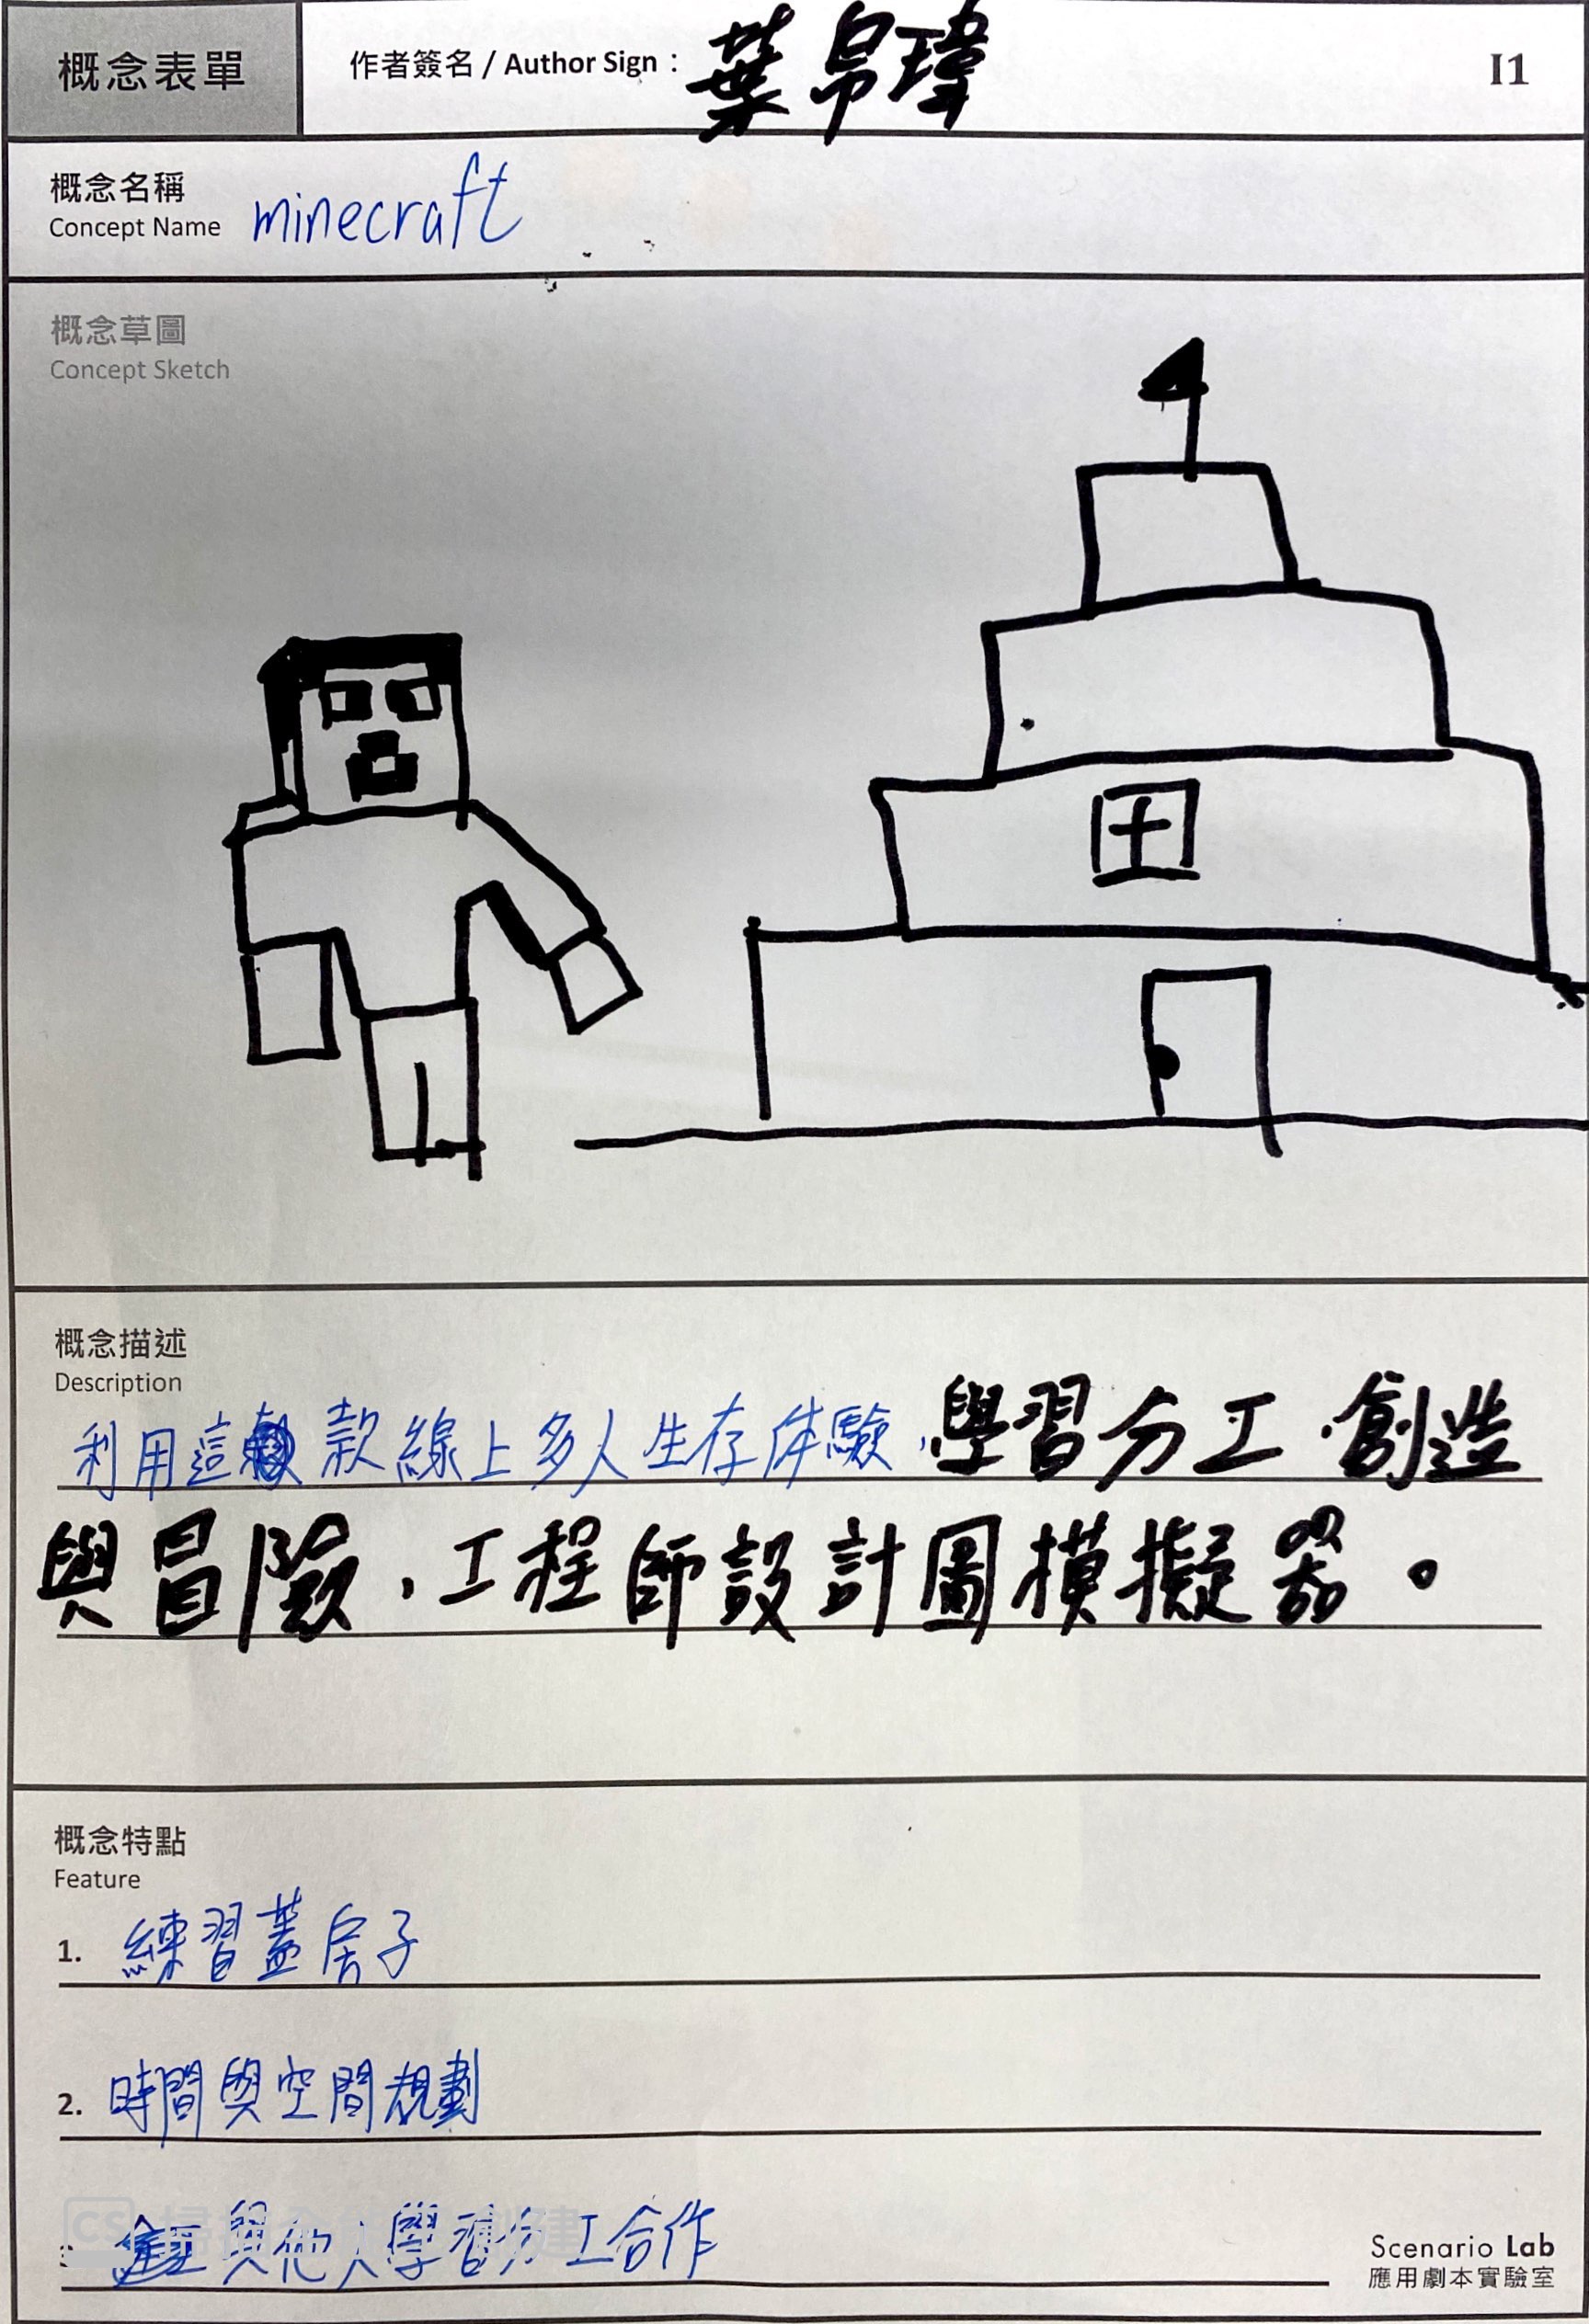 概念表單
作者簽名 / Author Sign：葉帛瑋
I1
概念名稱
Concept Name
minecraft
概念草圖
Concept Sketch
概念描述
Description
利用這款線上多人生存体驗，學習分工、創造
與冒險，工程師設計圖模擬器。
概念特點
Feature
1. 練習蓋房子
2. 時間與空間規劃
與他人學習分工合作
CS
Scenario Lab
應用劇本實驗室